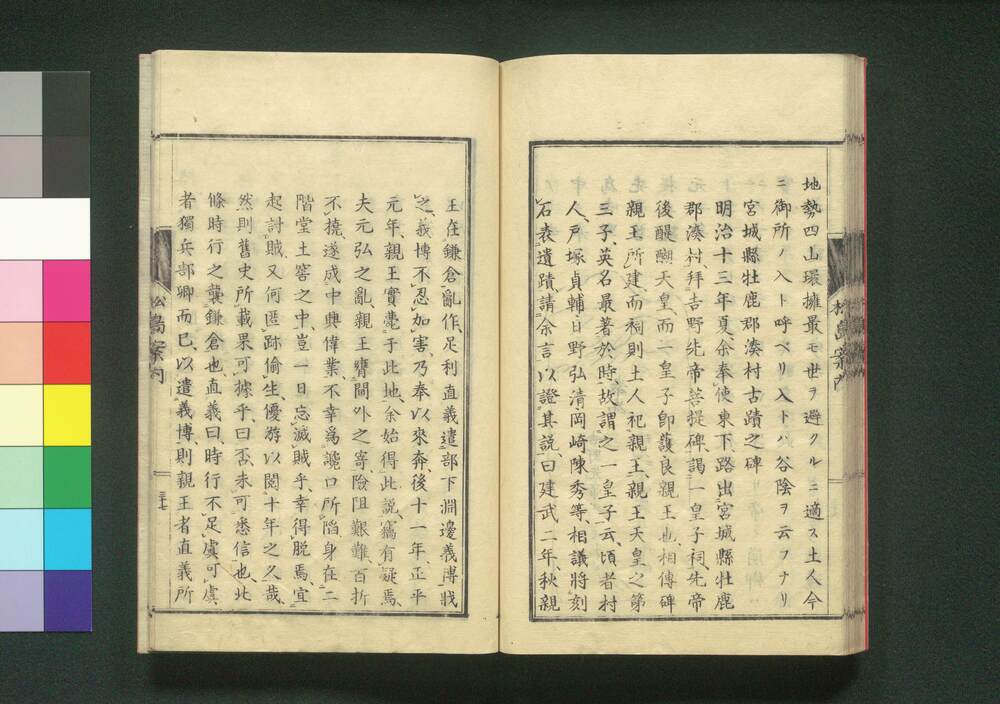 地勢四山環擁最モ世ヲ避クルニ適ス土人今
ニ御所ノ入ト呼ベリ入トハ谷陰ヲ云フナリ
宮城縣牡鹿郡湊村古蹟之碑
明治十三年夏、余奉使東下、路出宮城縣牡鹿
郡湊村、拜吉野先帝菩提碑、謁一皇子祠、先帝
後醍醐天皇、而一皇子卽護良親王也、相傳碑
親王所建而祠則土人祀親王、親王天皇之第
三子、英名最著於時、故謂之一皇子云、頃者村
人、戸塚貞輔、日野弘清、岡崎陳秀等、相議將刻
石表遺蹟、請余言以證其説、曰建武二年、秋親
王在鎌倉、亂作、足利直義遣部下淵邊義博戕
之、義博不忍加害、乃奉以來奔、後十一年、正平
元年、親王實薨于此地、余始得此説、竊有疑焉、
夫元弘之亂、親王膺閫外之寄、險阻艱難、百折
不撓、遂成中興偉業、不幸爲讒口所陷、身在二
階堂土窖之中、豈一日忘滅賊乎、幸得脱焉、宜
起討賊、又何匿跡偸生、優游以閲十年之久哉、
然則舊史所載果可據乎、曰否、未可悉信也、北
條時行之襲鎌倉也、直義曰、時行不足虞、可虞
者獨兵部卿而已、以遣義博、則親王者直義所
松島案内
松島案内
三十七